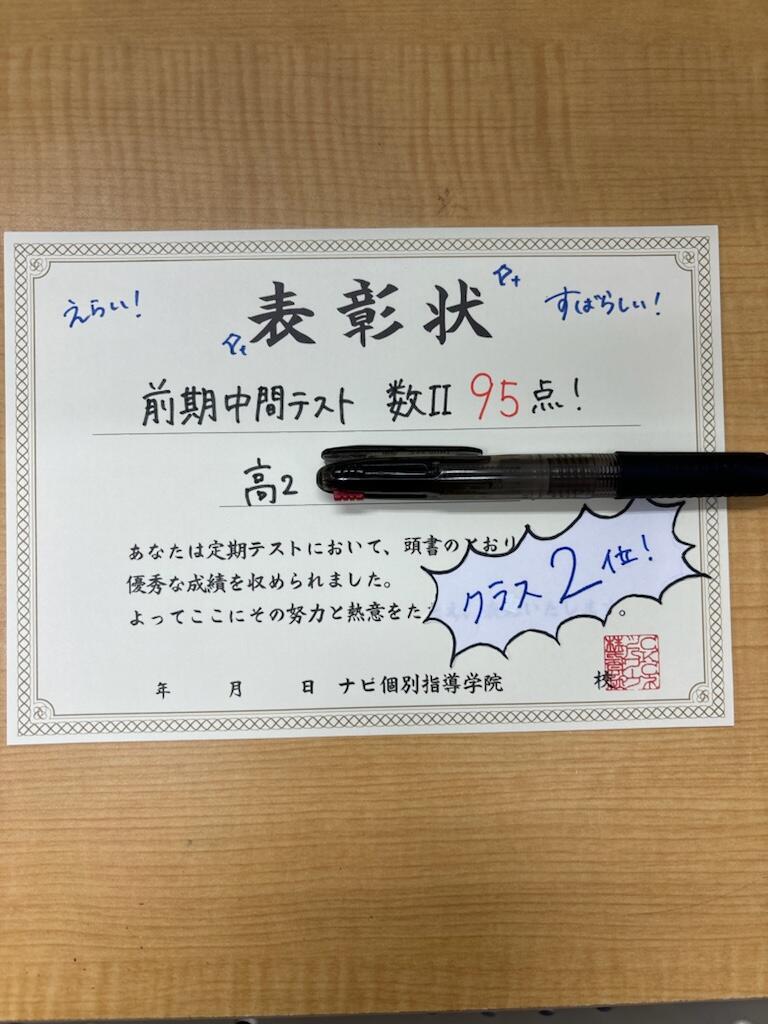 えらい!
表彰状
すばらしい!
前期中間テスト 数II 95点!
高2
あなたは定期テストにおいて、頭書のとおり
優秀な成績を収められました。
よってここにその努力と熱意をた
クラス2位!
年 月 日 ナビ個別指導学院 校